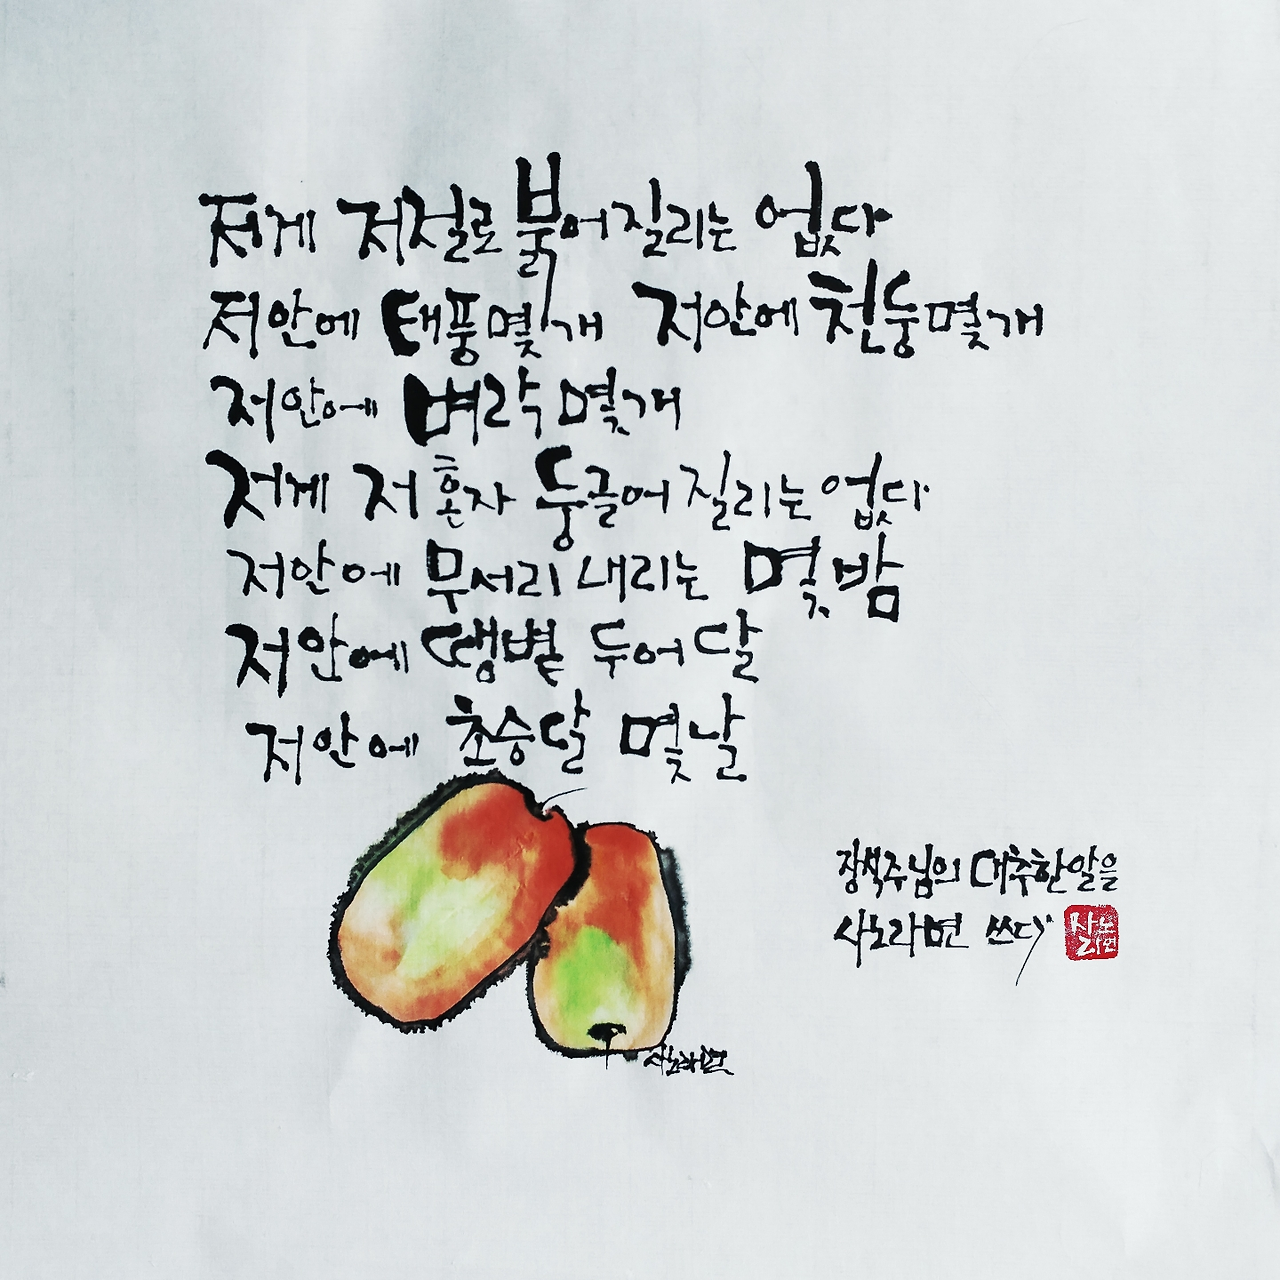 저게 저절로 붉어질리는 없다
저안에 태풍몇개 저안에 천둥몇개
저안에 벼락 몇개
저게 저 혼자 둥글어 질리는 없다
저안에 무서리 내리는 몇밤
저안에 땡볕 두어달
저안에 초승달 몇날
장석주님의 대추한알을
사노라면 쓰다
사노
라면
사노라면